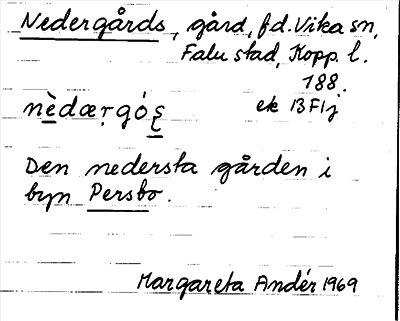 Nedergårds, gård, f.d. Vika sn,
Falu stad, Kopp. l.
188.
nèdær̩gó̱ş ek 13F1j
Den nedersta gården i
byn Persbo.
Margareta Andér 1969